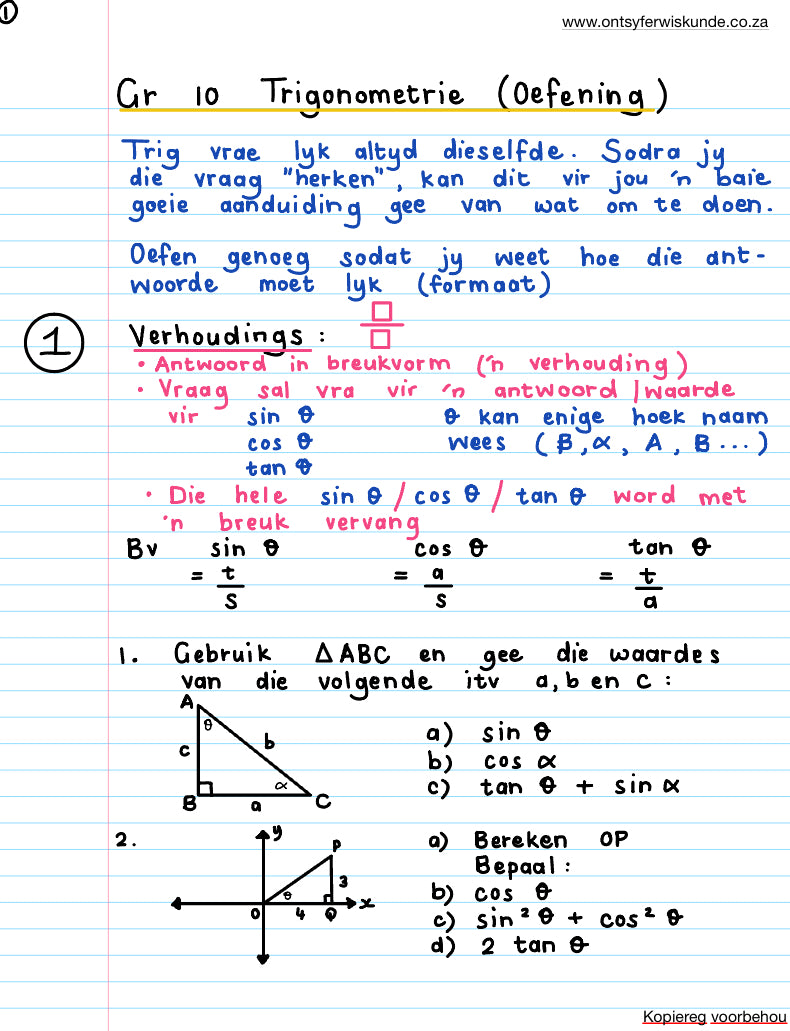 1
www.ontsyferwiskunde.co.za
Gr 10 Trigonometrie (Oefening)
Trig vrae lyk altyd dieselfde. Sodra jy
die vraag "herken", kan dit vir jou 'n baie
goeie aanduiding gee van wat om te doen.
Oefen genoeg sodat jy weet hoe die ant-
woorde moet lyk (formaat)
1 Verhoudings : □/□
• Antwoord in breukvorm ('n verhouding)
• Vraag sal vra vir 'n antwoord/waarde
vir sin θ θ kan enige hoek naam
cos θ wees (β, α, A, B...)
tan θ
• Die hele sin θ / cos θ / tan θ word met
'n breuk vervang
Bv sin θ cos θ tan θ
= t/s = a/s = t/a
1. Gebruik ΔABC en gee die waardes
van die volgende itv a, b en c :
A
θ
c b
B a α C
a) sin θ
b) cos α
c) tan θ + sin α
2.
y
P
3
θ
O 4 Q x
a) Bereken OP
Bepaal :
b) cos θ
c) sin² θ + cos² θ
d) 2 tan θ
Kopiereg voorbehou